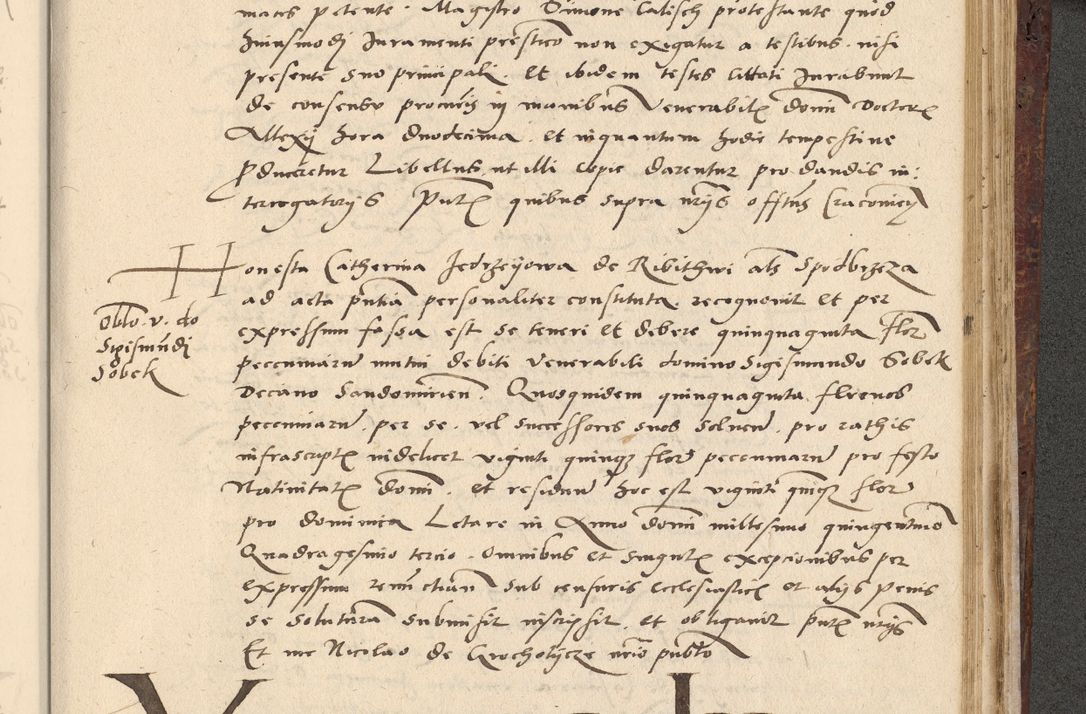 mates petente. Magistro Simone Calisch protestante quod
huiusmodj Iuramenti prestico non exigatur a testibus. nisi
presente suo principali. Et ibidem testes cittati Iurabunt
de consensu procuris in manibus Venerabil domi Doctor
Allexij hora duodecima. et inquantum hodie tempestiue
producretur Libellus, ut illi copie darentur pro dandis in:
terrogatorijs Put quibus supra nrijs offitns Craconien
Honesta Catherina Jedrzeyowa de Ribithwi als Spodbrzeza
ad acta pntia personaliter constituta. recognouit et per
expressum fassa est se teneri et debere quinquaginta flor
pecuniarum mutui debiti Venerabili domino Sigismundo Sobek
Decano Sandomirien. Quosquidem quinquaginta florenos
pecuniaru. per se. vel successores suos soluere. pro rathis
infrascript uidelicet viginti quinq flor pecuniaru pro festo
Natiuitat domi. et residuu hoc est viginti quinq flor
pro dominica Letare in Anno domi millesimo quingentmo
Quadragesimo tercio. Omnibus et singulis excepcionibus per
expressum renunctian sub censuris ecclesiastic et alijs penis
se soluturam submisit inscripsit. et obligauit pnt nrijs
Et me Nicolao de Grochotycze nrio publo
Oblo. v. do
Sigismundj
Sobek